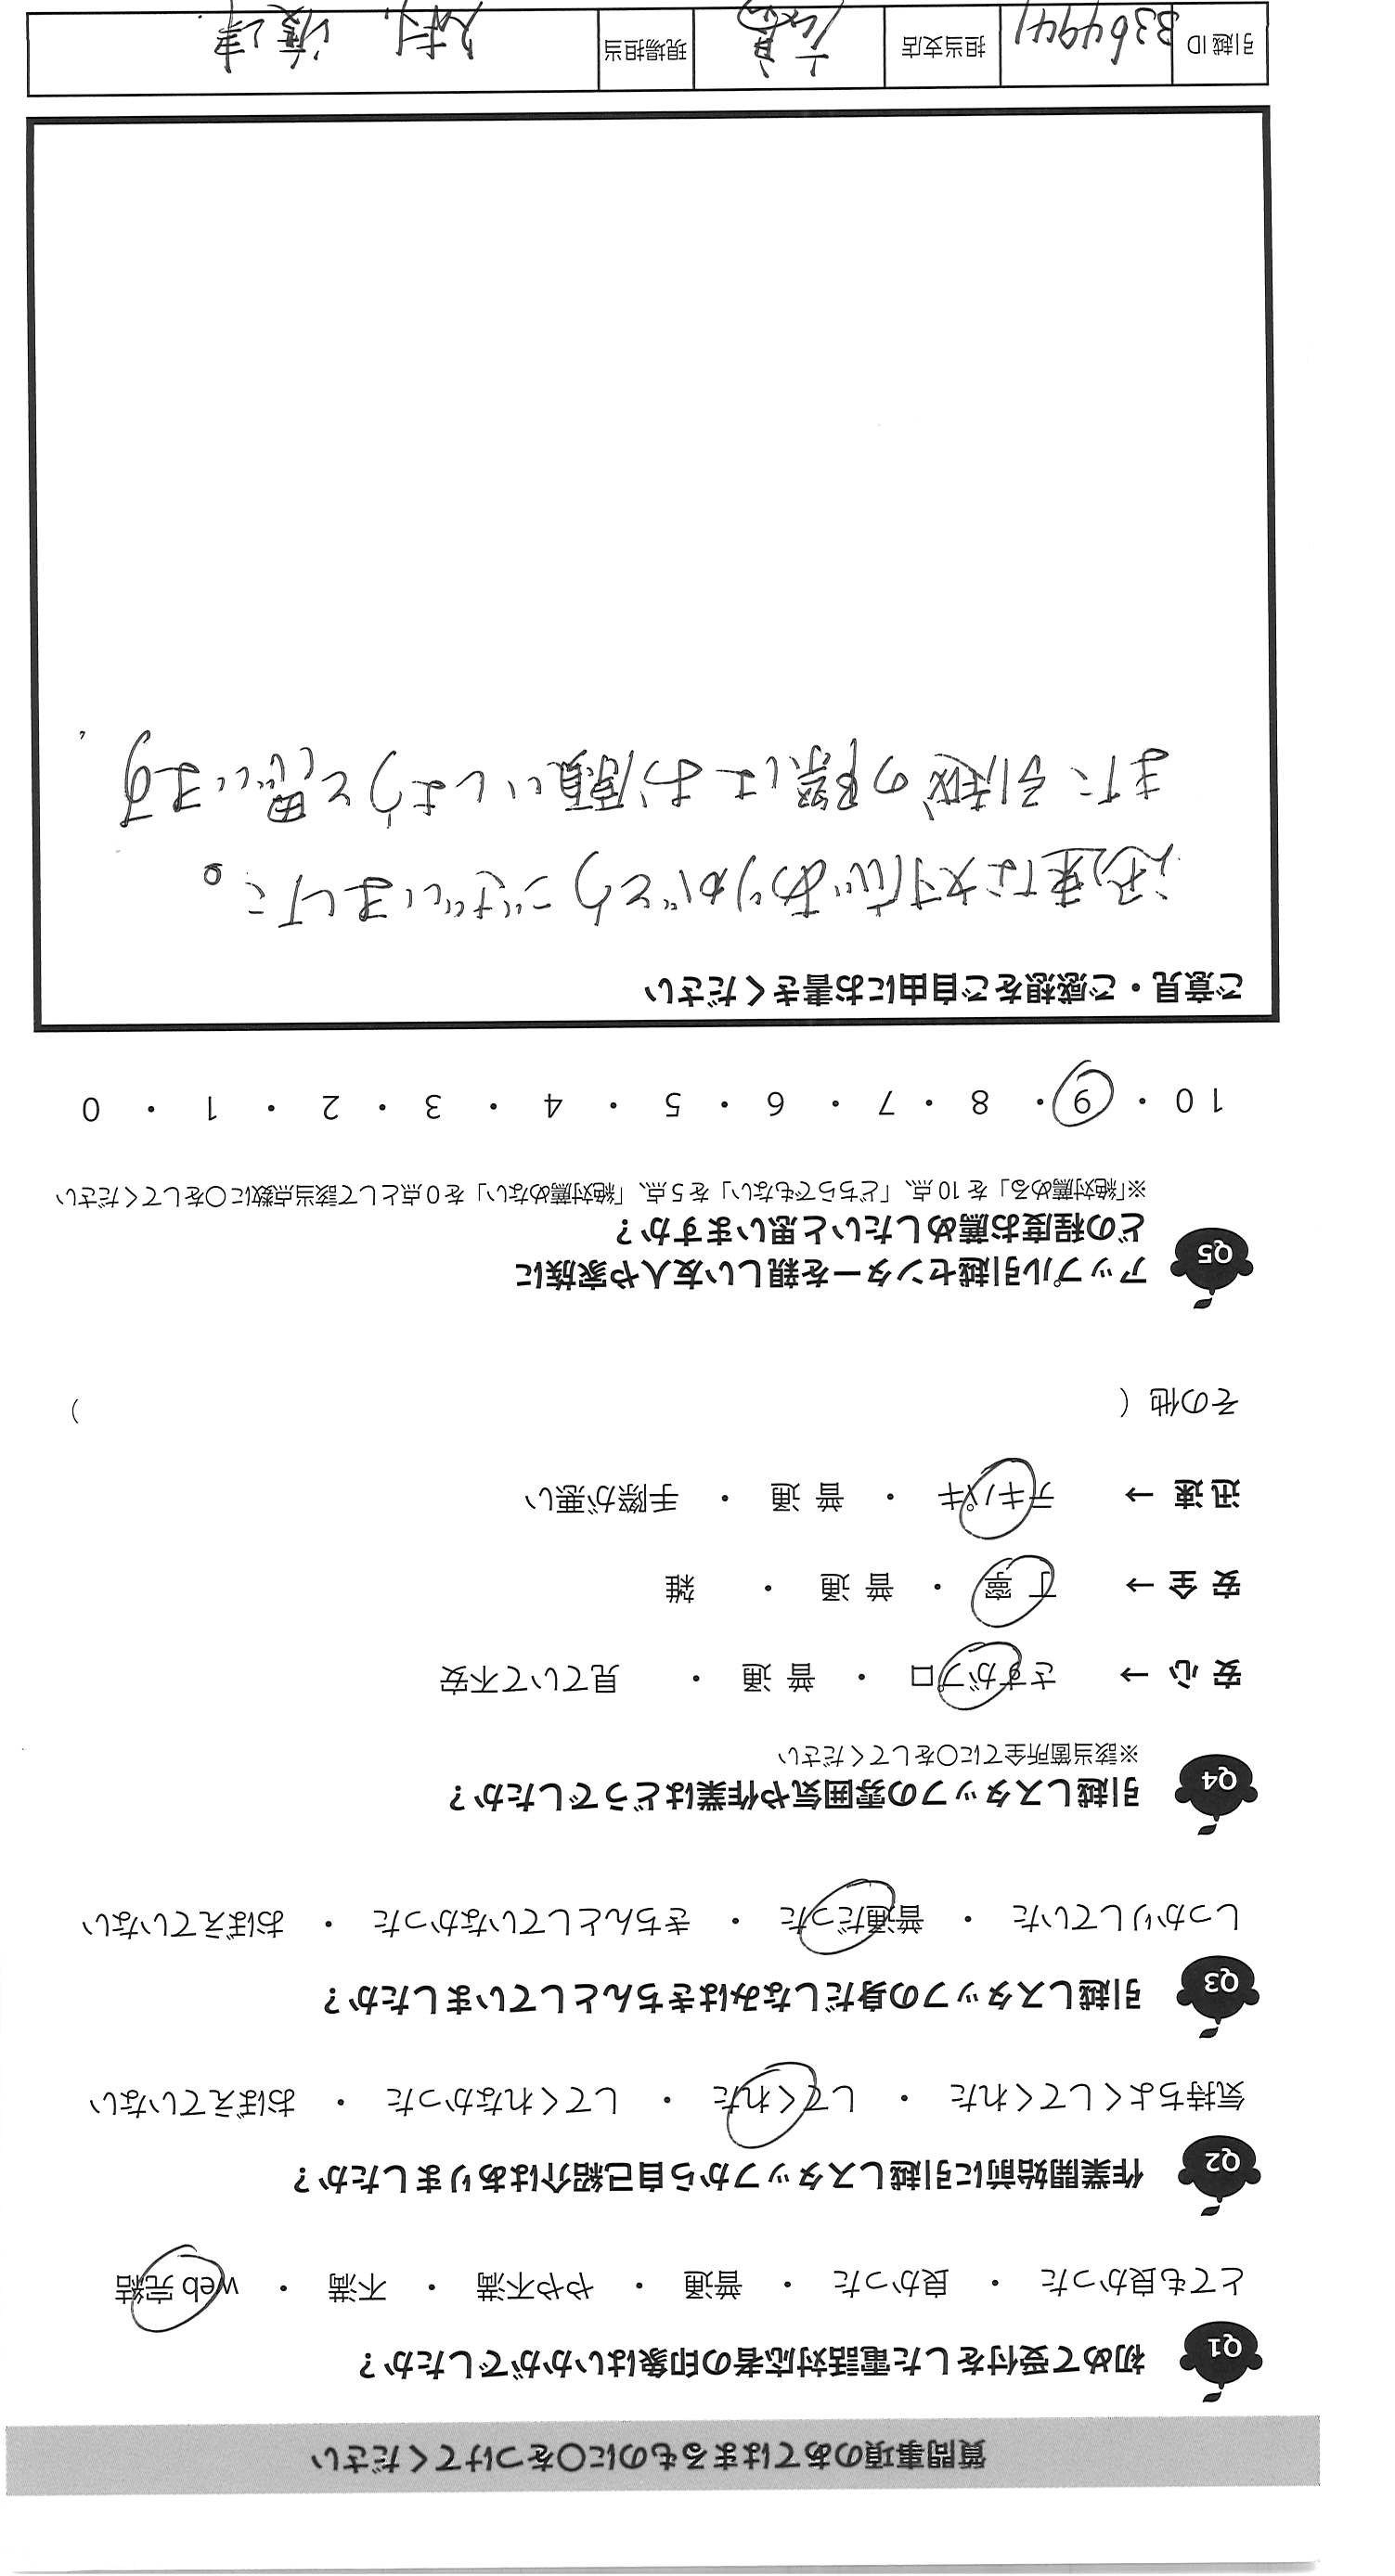 質問事項のあてはまるものに〇をつけてください
Q1 初めて受付をした電話対応者の印象はいかがでしたか？
とても良かった ・ 良かった ・ 普通 ・ やや不満 ・ 不満 ・ web 完結
Q2 作業開始前に引越しスタッフから自己紹介はありましたか？
気持ちよくしてくれた ・ してくれた ・ してくれなかった ・ おぼえていない
Q3 引越しスタッフの身だしなみはきちんとしていましたか？
しっかりしていた ・ 普通だった ・ きちんとしていなかった ・ おぼえていない
Q4 引越しスタッフの雰囲気や作業はどうでしたか？
※該当箇所全てに〇をしてください
安 心 → さすがプロ ・ 普 通 ・ 見ていて不安
安 全 → 丁 寧 ・ 普 通 ・ 雑
迅 速 → テキパキ ・ 普 通 ・ 手際が悪い
その他（ ）
Q5 アップル引越センターを親しい友人や家族に
どの程度お薦めしたいと思いますか？
※「絶対薦める」を 10 点、「どちらでもない」を 5 点、「絶対薦めない」を 0 点として該当点数に〇をしてください
10 ・ 9 ・ 8 ・ 7 ・ 6 ・ 5 ・ 4 ・ 3 ・ 2 ・ 1 ・ 0
ご意見・ご感想をご自由にお書きください
迅速な対応ありがとうございました。
また引越の際はお願いしようと思います
引越 ID 3364941 担当支店 現場担当